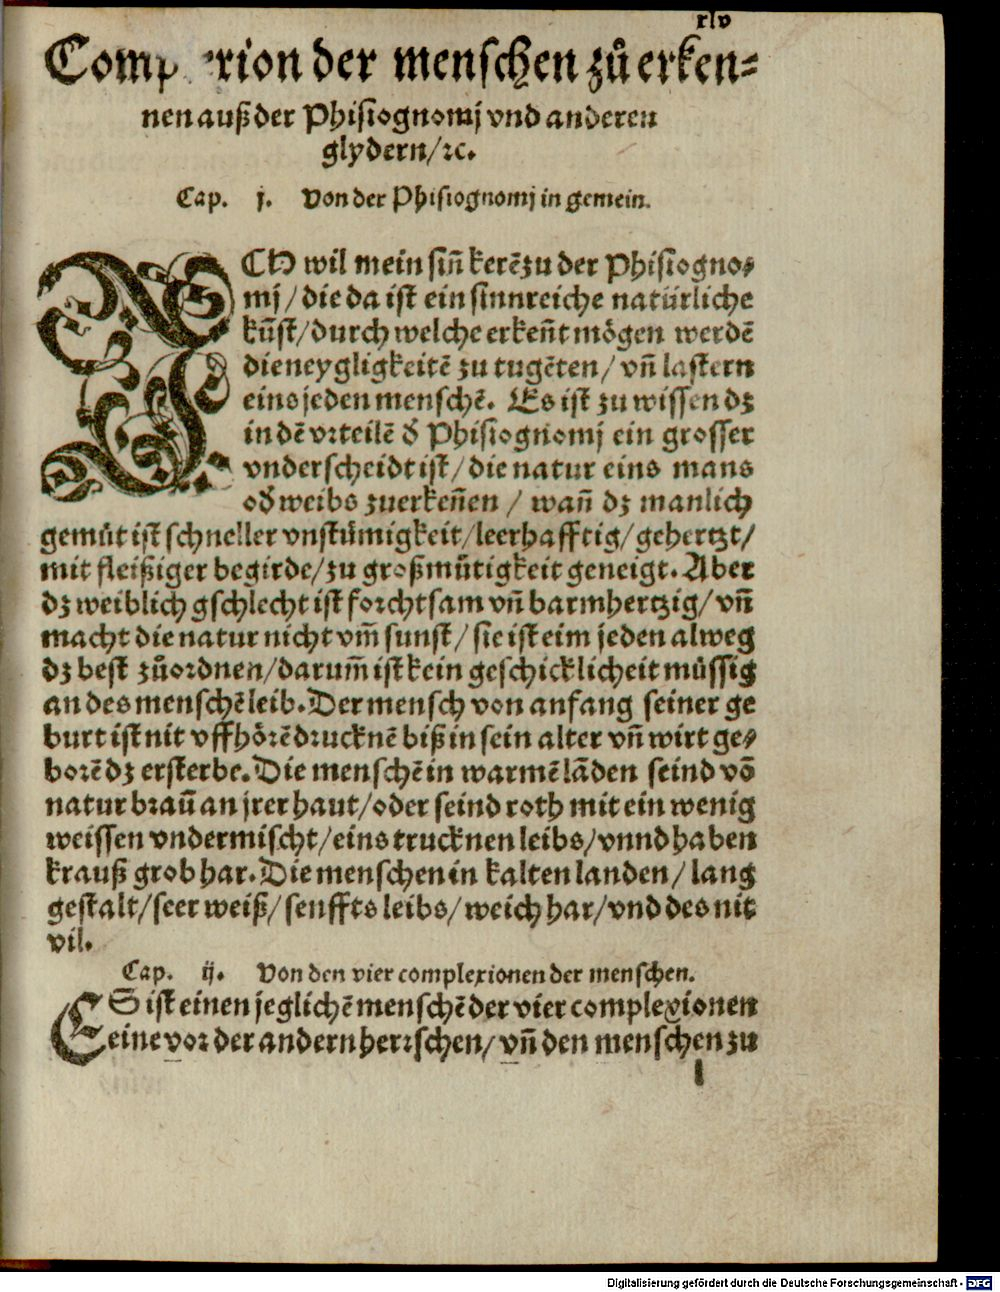 xlv
Comp rion der menschen zů erken-
nen auß der Phisiognomj vnd anderen
glydern/ ꝛc.
Cap. j. Von der Phisiognomj in gemein.
ICH wil mein siñ kerē zu der Phisiogno-
mj/ die da ist ein sinnreiche natürliche
kūst/ durch welche erkeñt mögen werdē
die neygligkeitē zu tugētem/ vñ lastern
eins jeden menschē. Es ist zu wissen dz
in dē vrteilē d̕ Phisiognomj ein grosser
vnderscheidt ist/ die natur eins mans
od̕ weibs zuerkeñen / wañ dz manlich
gemůt ist schneller vnstůmigkeit/ leerhafftig/ gehertzt/
mit fleißiger begirde/ zu großmůtigkeit geneigt. Aber
dz weiblich gschlecht ist forchtsam vñ barmhertzig/ vñ
macht die natur nicht vm̄ sunst/ sie ist eim jeden alweg
dz best zůordnen/ darum̄ ist kein geschicklicheit můssig
an des menschē leib. Der mensch von anfang seiner ge
burt ist nit vffhörē drucknē biß in sein alter vñ wirt ge-
borē dz ersterbe. Die menschē in warmē lāden seind vō
natur brau̅ an jrer haut/ oder seind roth mit ein wenig
weissen vndermischt/ eins trucknen leibs/ vnnd haben
krauß grob har. Die menschen in kalten landen/ lang
gestalt/ seer weiß/ senffts leibs/ weich har/ vnd des nit
vil.
Cap. ij. Von den vier complexionen der menschen.
ES ist einen jeglichē menschē der vier complexionen
eine vor der andern herrschen/ vñ den menschen zu
Digitalisierung gefördert durch die Deutsche Forschungsgemeinschaft - DFG